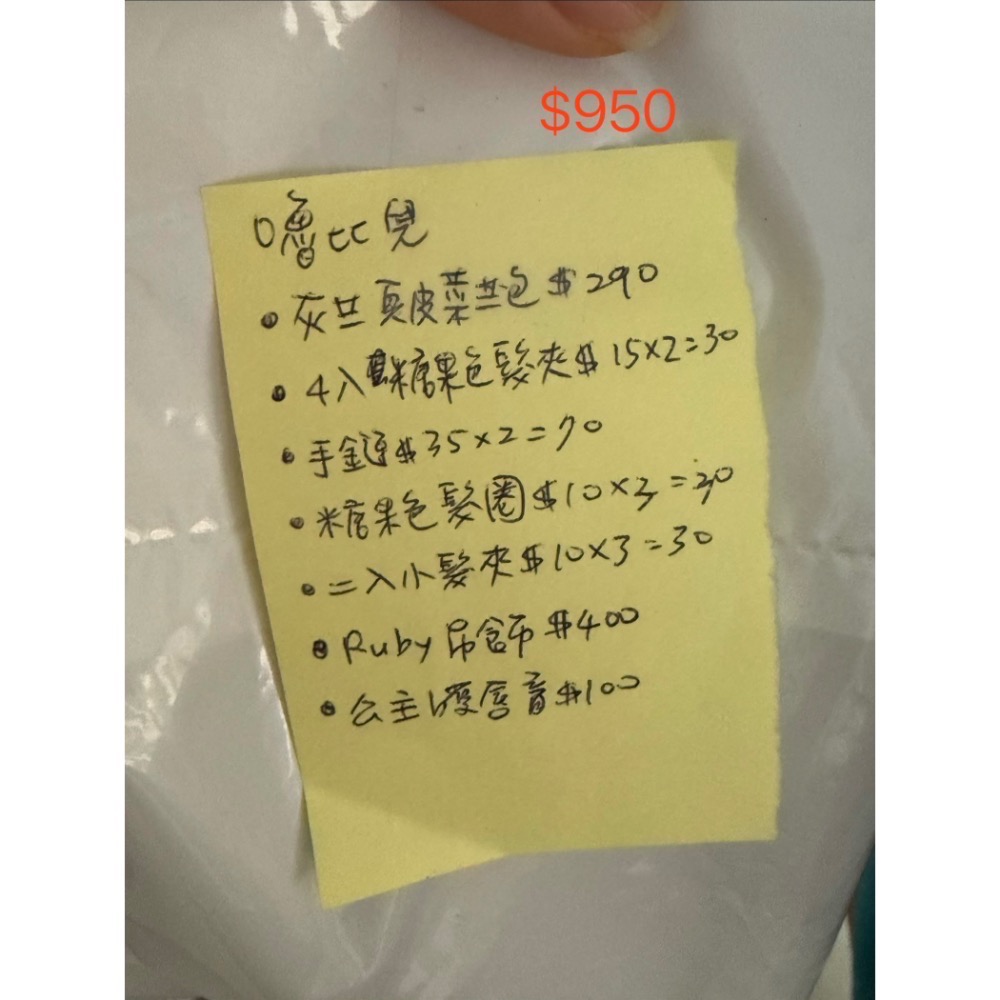 $950
嚕比兒
• 灰廿真皮菜廿包 $290
• 4入糖果色髮夾$ 15×2=30
• 手鍊$35×2=70
• 糖果色髮圈$10×3=30
• 二入小髮夾$10×3=30
• Ruby吊飾 $400
• 公主護唇膏$100